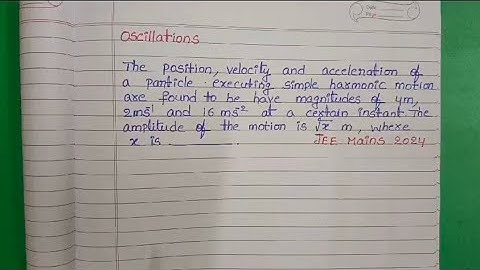 Oscillations
The position, velocity and acceleration of
a particle executing simple harmonic motion
are found to be have magnitudes of 4m,
2ms⁻¹ and 16 ms⁻² at a certain instant. The
amplitude of the motion is √x m, where
x is ________. JEE Mains 2024